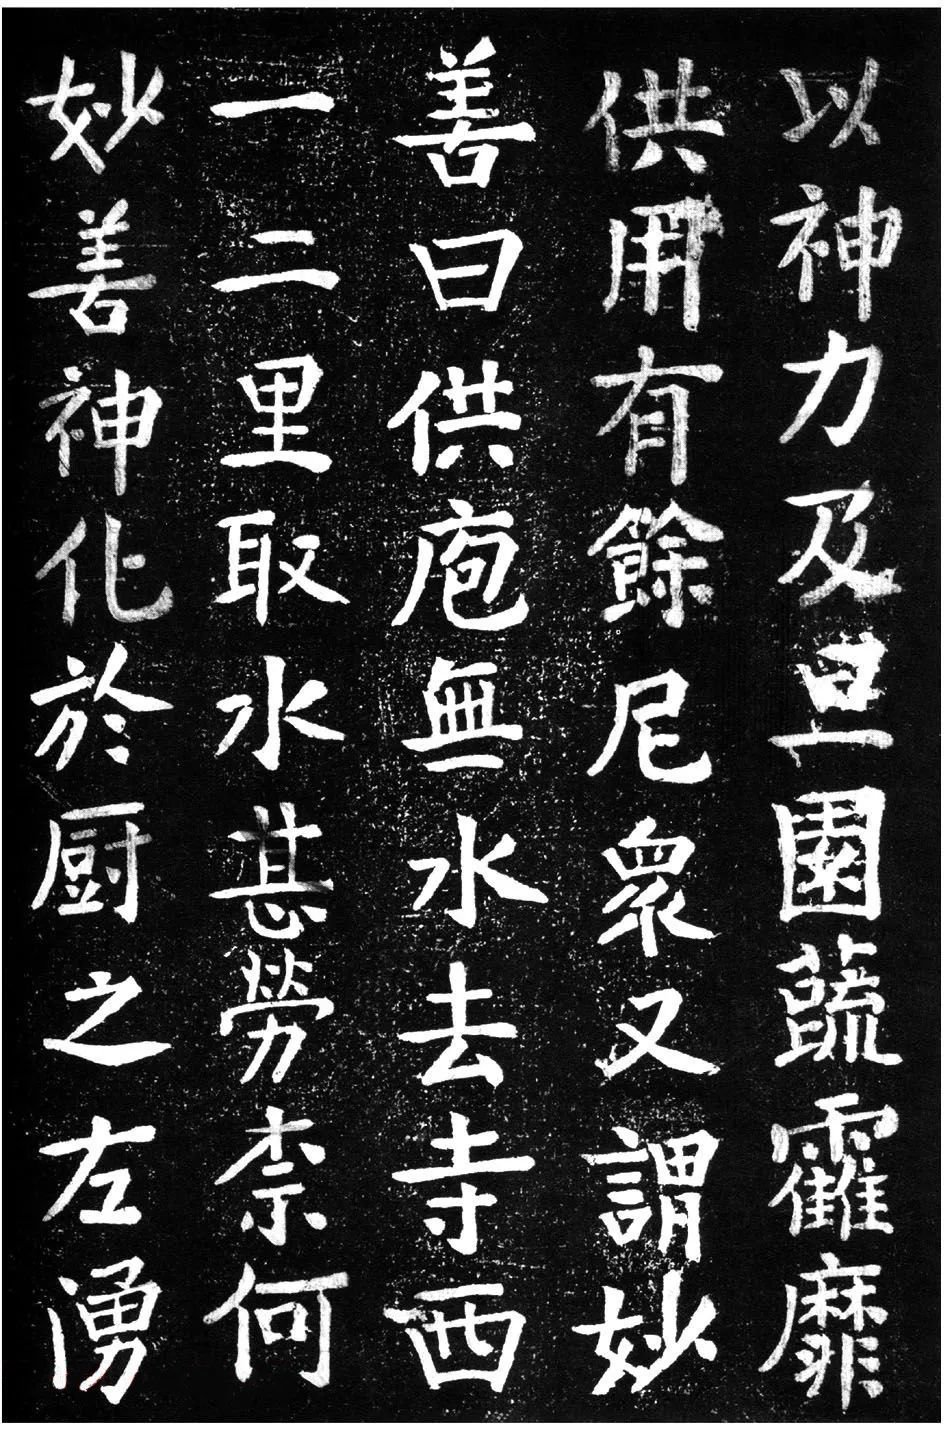 以神力及旦園蔬霍靡
供用有餘尼衆又謂妙
善曰供庖無水去寺西
一二里取水甚勞柰何
妙善神化於厨之左湧